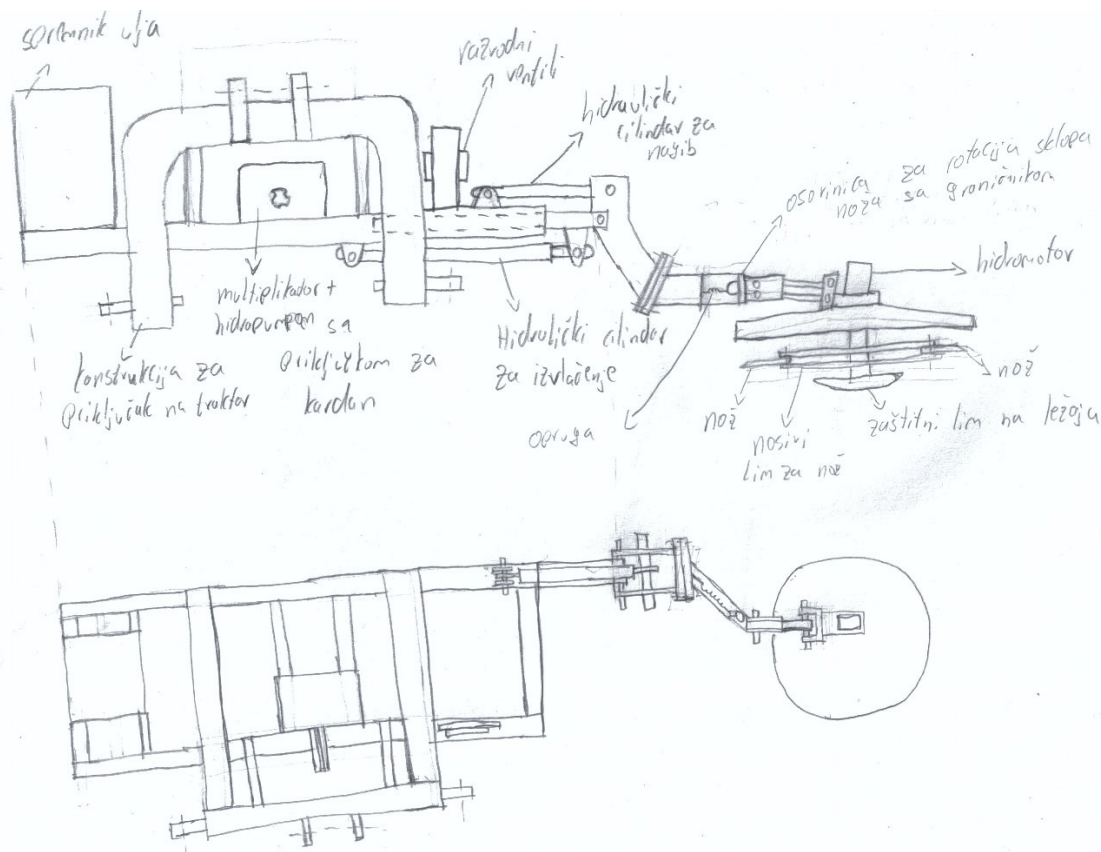 spremnik ulja
razvodni
ventili
hidraulički
cilindar za
nagib
osovinica za rotacija sklopa
noža sa graničnikom
hidromotor
multiplikator +
hidropumpa sa
priključkom za
kardan
konstrukcija za
priključak na traktor
Hidraulički cilindar
za izvlačenje
opruga
nož
nosivi
lim za nož
zaštitni lim na ležaja
nož